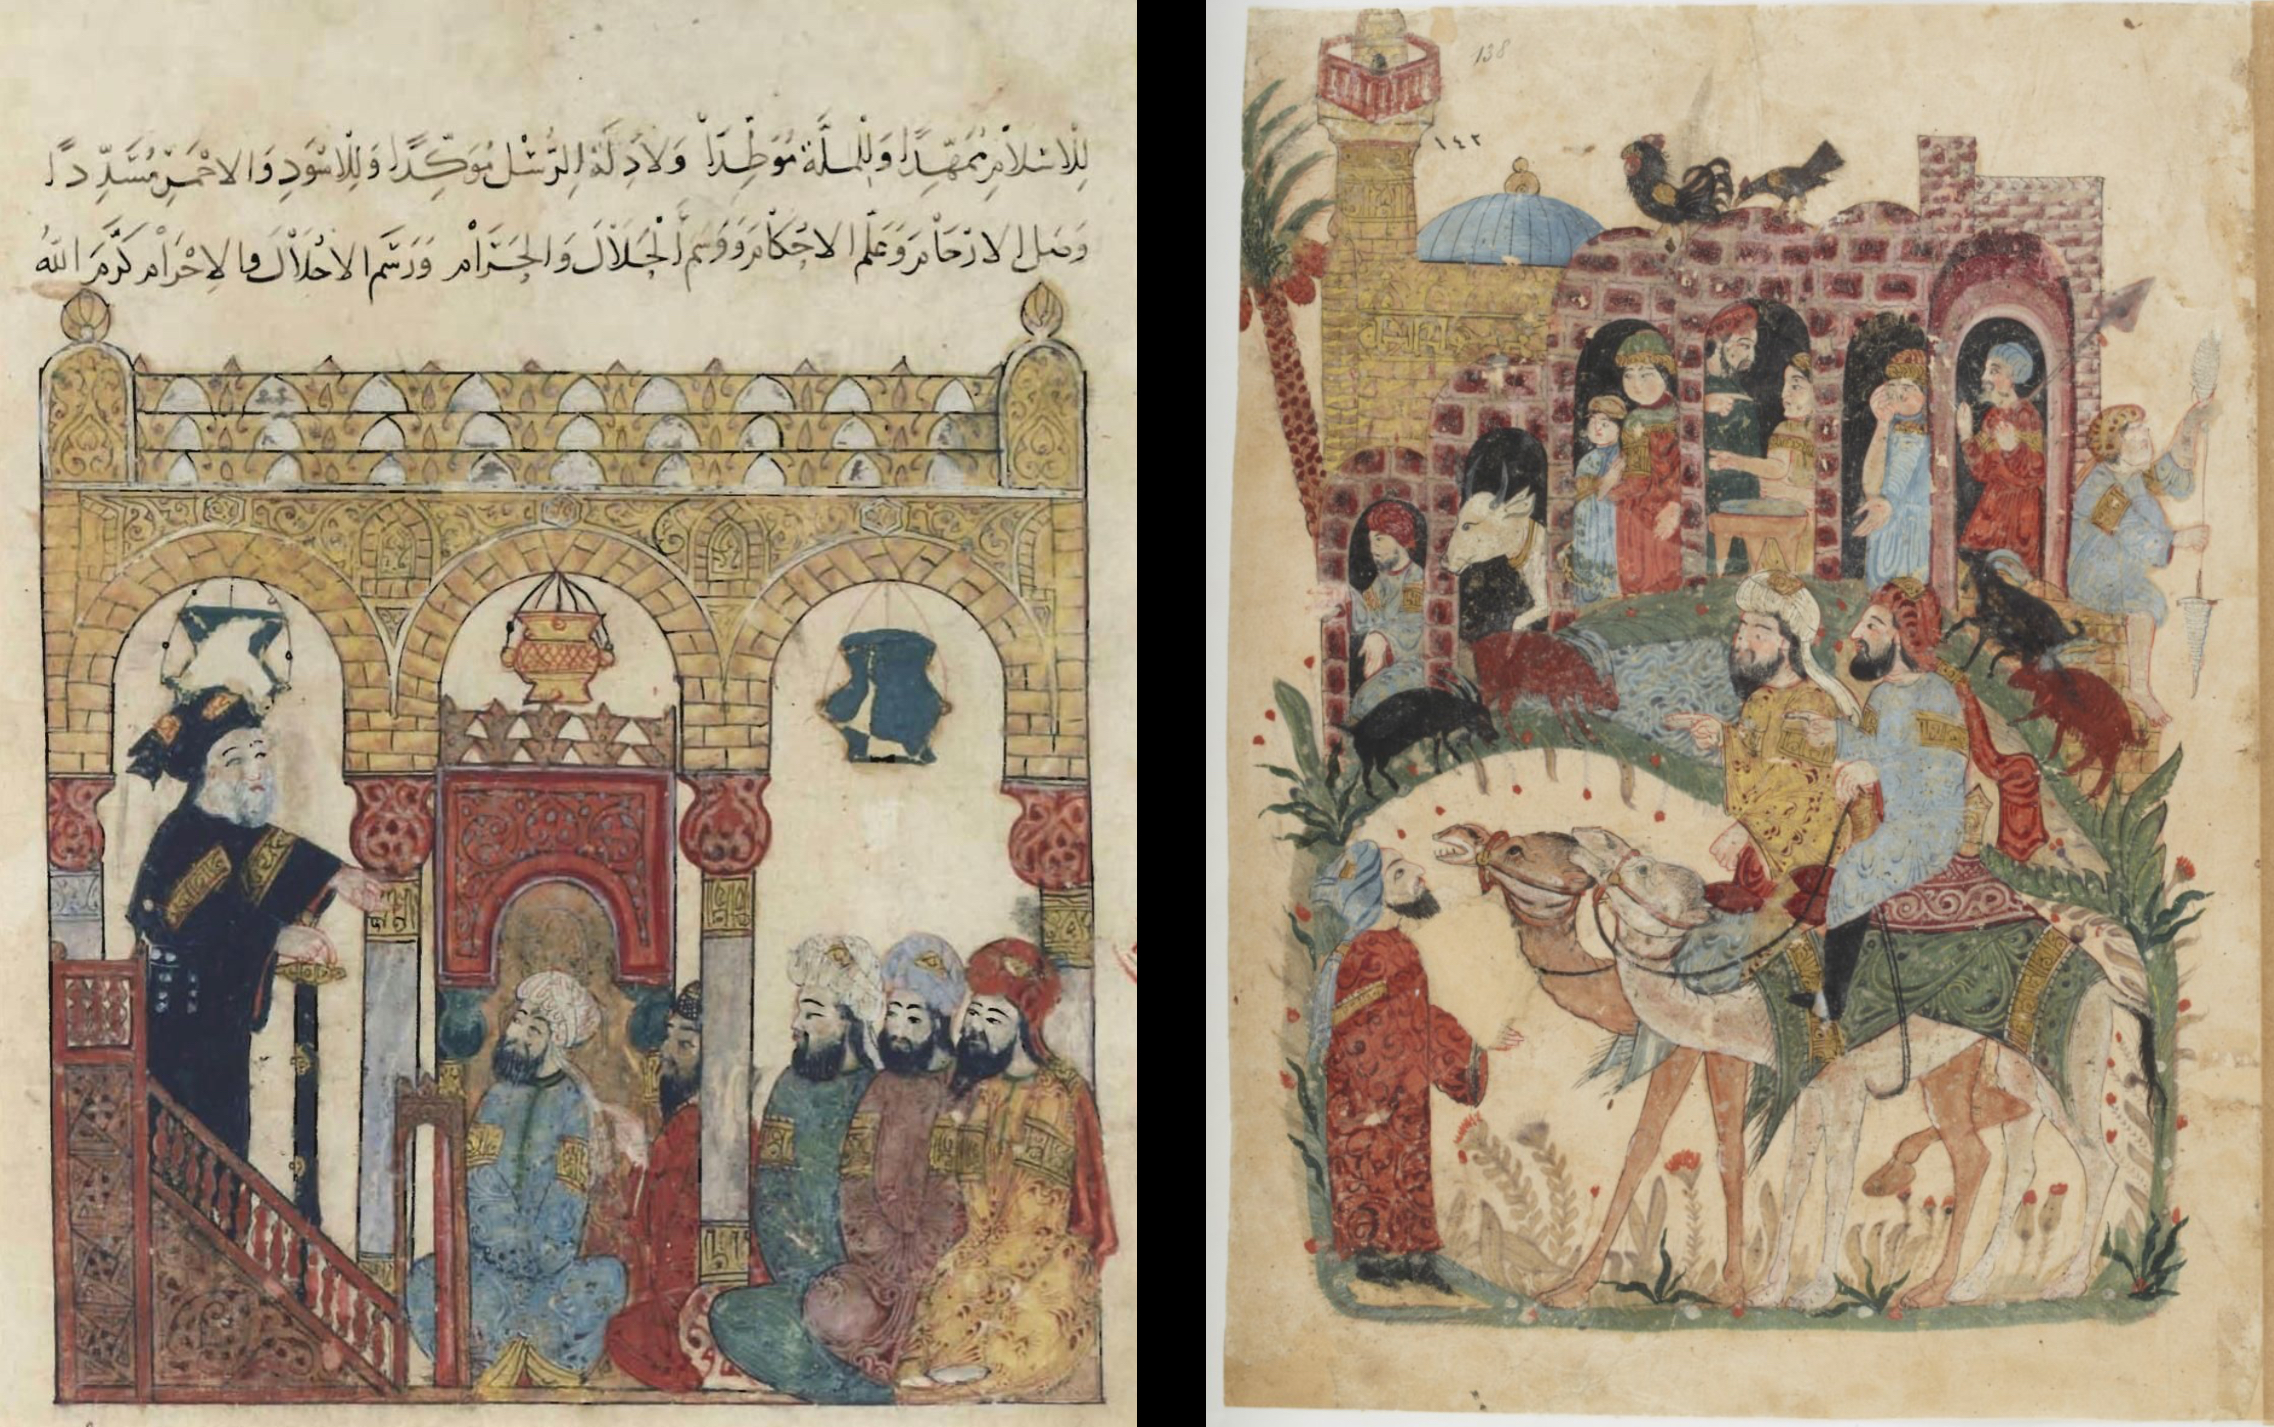 لِلاسْلامِ مُمَهِّدًا وَلِلمِلَّةِ مُوَطِّدًا وَلادِلَّةِ الرُّسْلِ مُوَكِّدًا وَلِلاسْوَدِ وَالاحْمَرِ مُسَدِّدًا
وَصَلَ الارْحَامَ وَعَلَّمَ الاحْكَامَ وَوَسَمَ الْحَلَالَ وَالْحَرَامَ وَرَسَمَ الاحْلَالَ والاحْرَامَ كَرَّمَ اللهُ
138
١٤٢